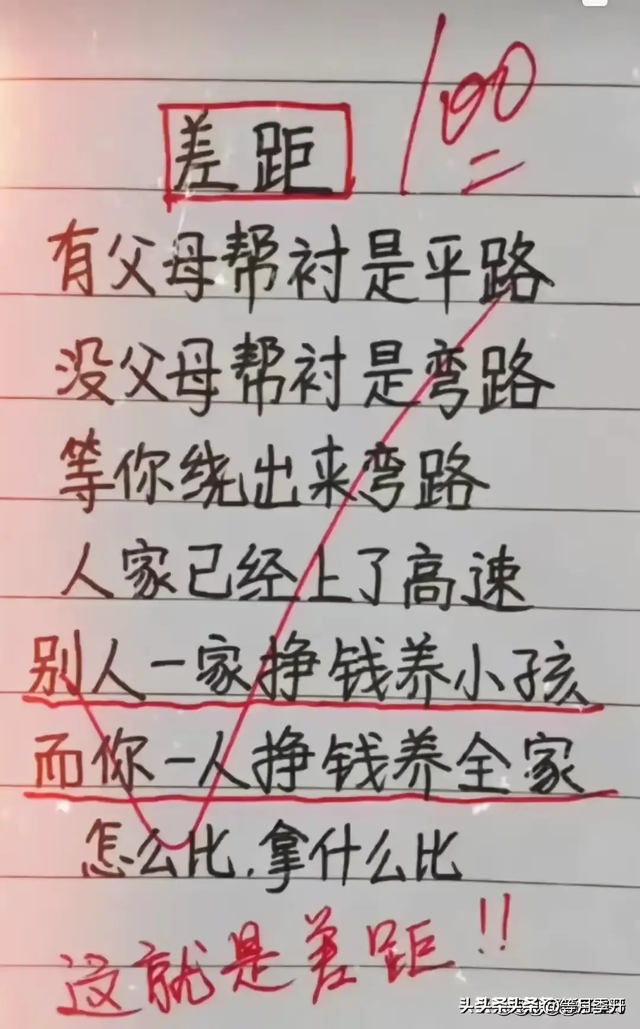 100
差距
有父母帮衬是平路
没父母帮衬是弯路
等你绕出来弯路
人家已经上了高速
别人一家挣钱养小孩
而你一人挣钱养全家
怎么比,拿什么比
这就是差距!!